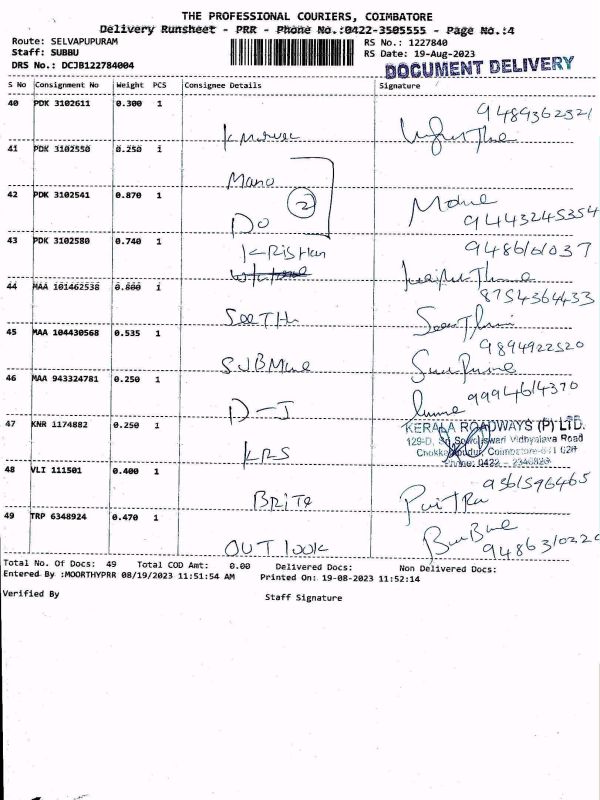 THE PROFESSIONAL COURIERS, COIMBATORE
Delivery Runsheet - PRR - Phone No.:0422-3505555 - Page No.:4
Route: SELVAPUPURAM
RS No.: 1227840
Staff: SUBBU
RS Date: 19-Aug-2023
DRS No.: DCJB122784004
DOCUMENT DELIVERY
S No Consignment No Weight PCS Consignee Details Signature
40 PDK 3102611 0.300 1
9489362321
41 PDK 3102550 0.250 1
Mano
42 PDK 3102541 0.870 1
2
Do
9443245354
43 PDK 3102580 0.740 1
Krishan
44 MAA 101462538 0.800 1
8754364433
SeeTh
45 MAA 104430568 0.535 1
9894922520
46 MAA 943324781 0.250 1
D-J
9994614370
47 KNR 1174882 0.250 1
KERALA ROADWAYS (P) LTD.
KRS
48 VLI 111501 0.400 1
9361596465
BRITE
49 TRP 6348924 0.470 1
OUTlook
Total No. Of Docs: 49 Total COD Amt: 0.00 Delivered Docs: Non Delivered Docs:
Entered By :MOORTHYPRR 08/19/2023 11:51:54 AM Printed On: 19-08-2023 11:52:14
Verified By
Staff Signature